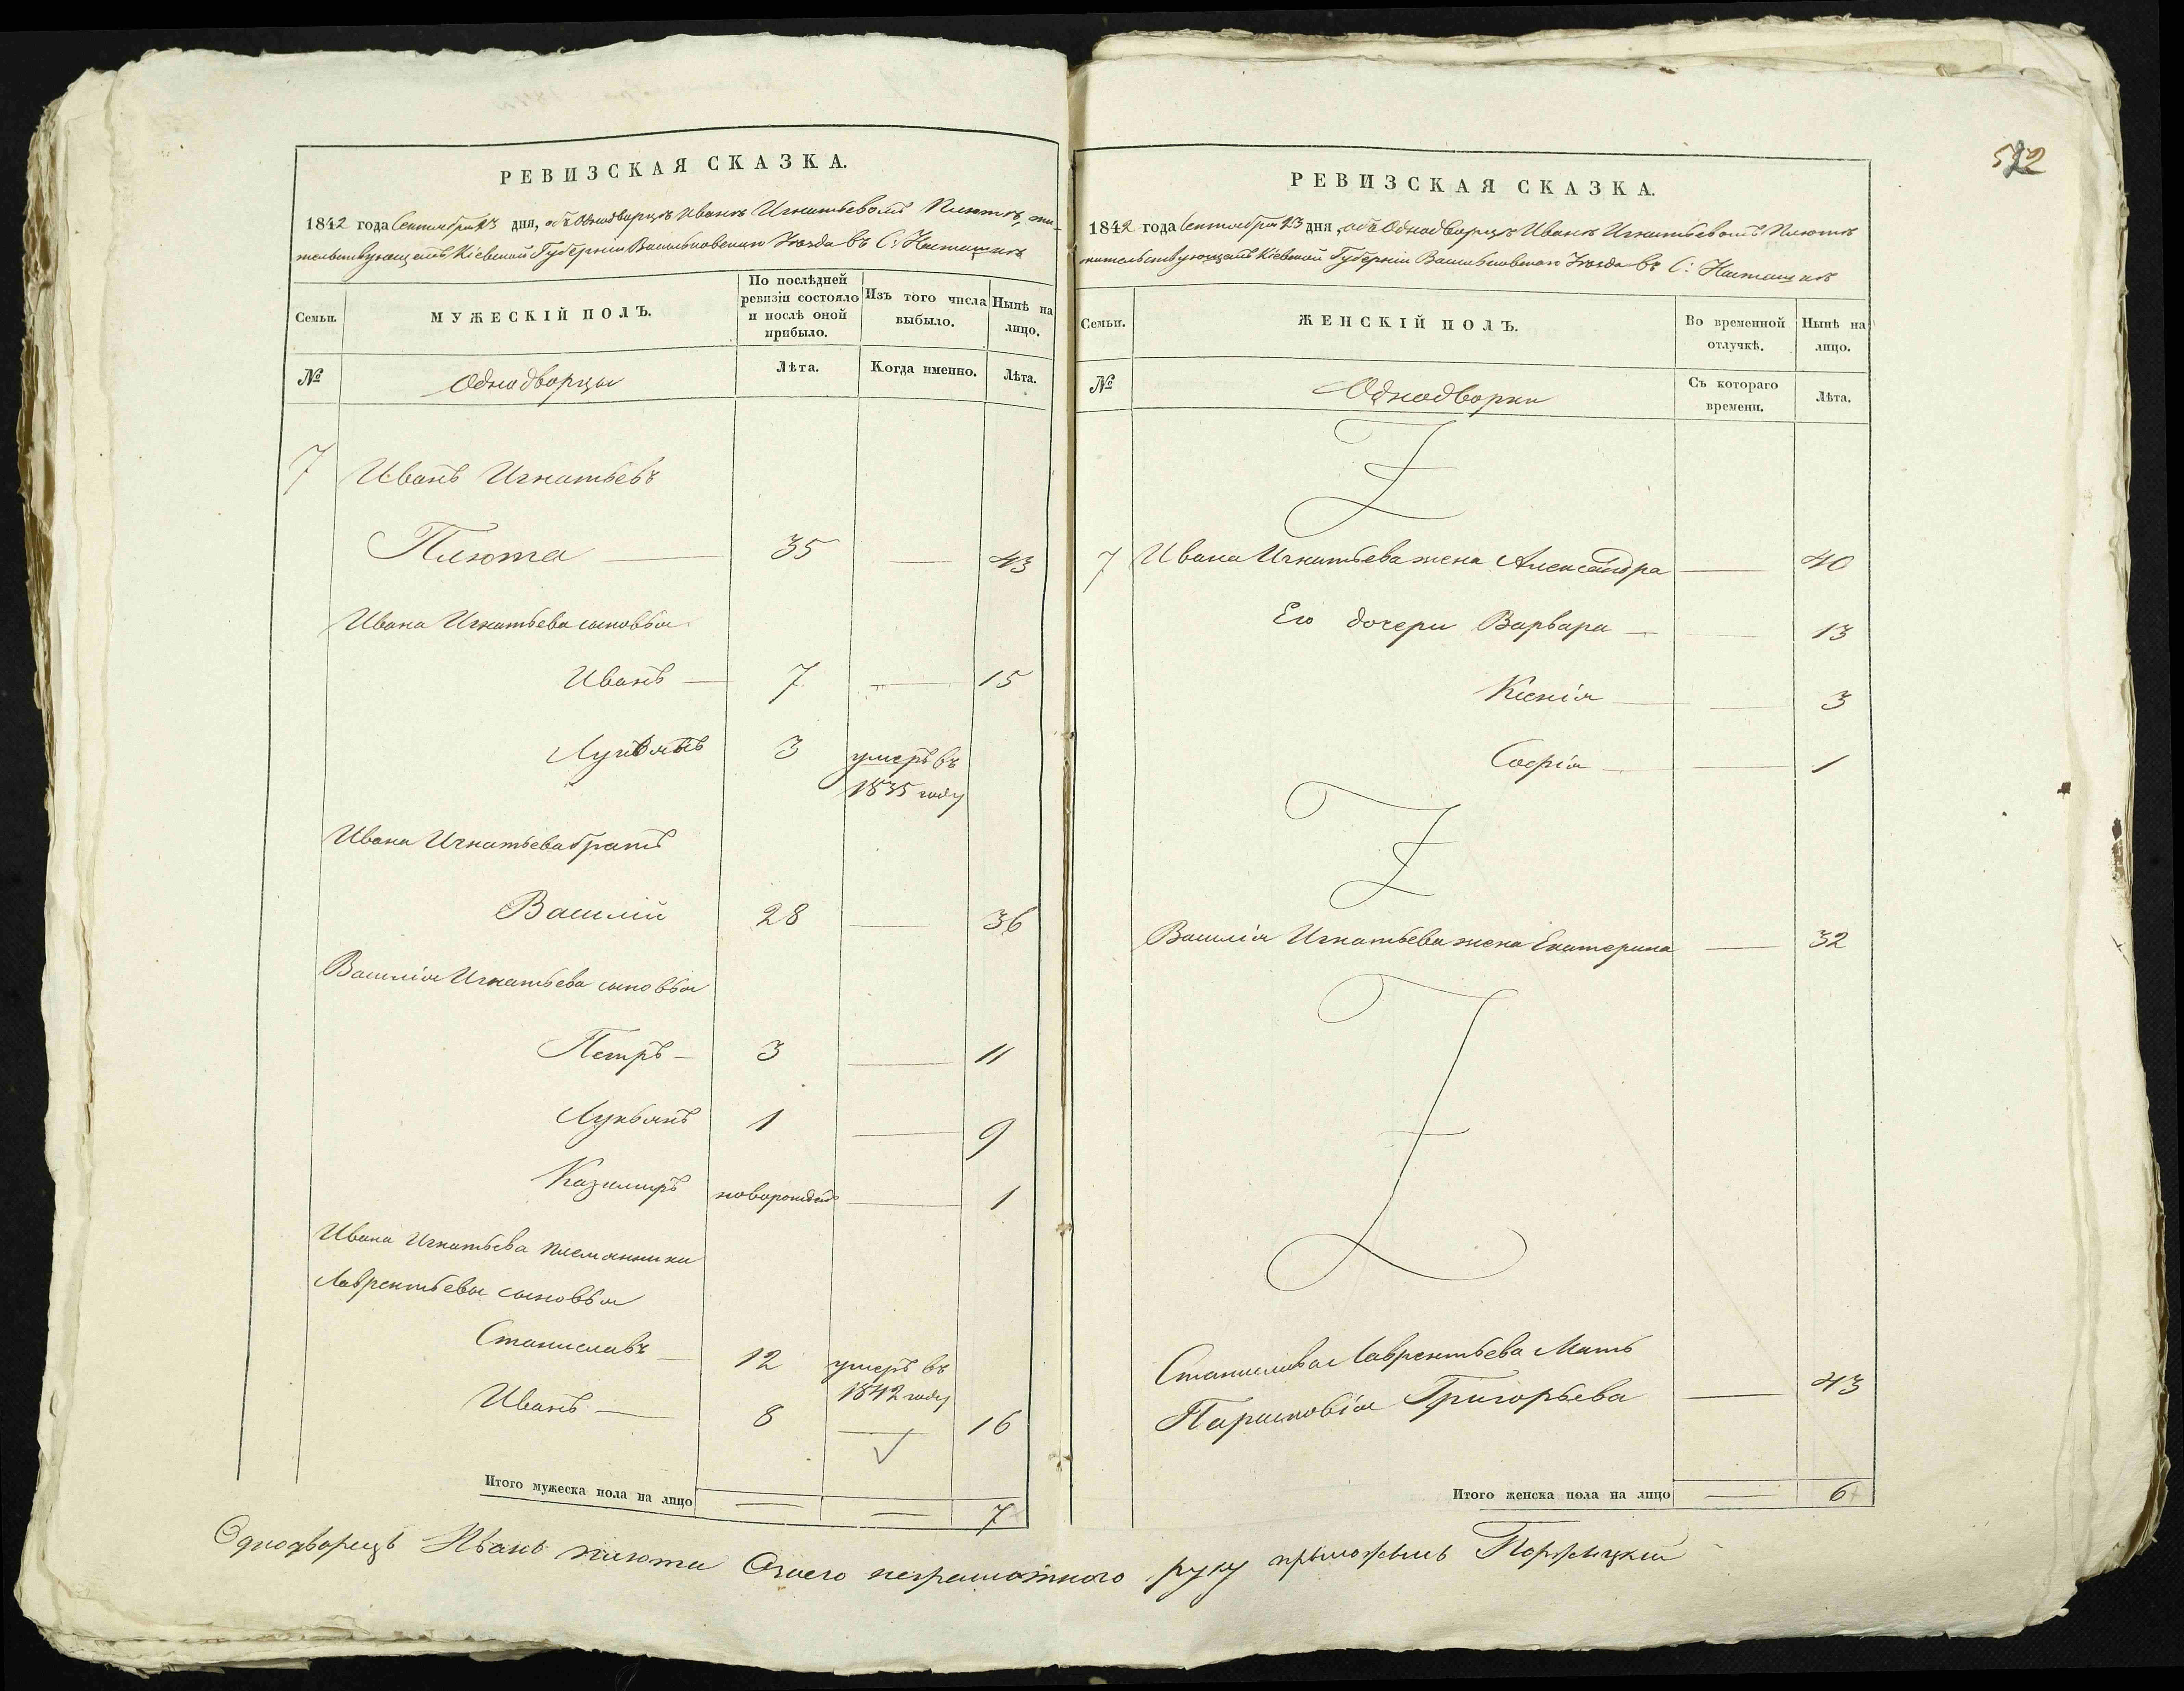 РЕВИЗСКАЯ СКАЗКА.
1842 года Сентября 23 дня, объ Однодворцѣ Иванѣ Игнатьевомъ Плютѣ, жи-
тельствующемъ Кіевской Губерніи Васильковскаго Уѣзда въ С: Насташкѣ
Семьи.
МУЖЕСКІЙ ПОЛЪ.
По послѣдней
ревизіи состояло
и послѣ оной
прибыло.
Изъ того числа
выбыло.
Нынѣ на
лицо.
№
Однодворцы
Лѣта.
Когда именно.
Лѣта.
7 Иванъ Игнатьевъ
Плюта — 35 — 43
Ивана Игнатьева сыновья
Иванъ — 7 — 15
Лукьянъ 3 умеръ въ
1835 году
Ивана Игнатьева братъ
Василій 28 — 36
Василія Игнатьева сыновья
Петръ — 3 — 11
Лукьянъ 1 — 9
Казимиръ новорожден — 1
Ивана Игнатьева племянники
Лаврентьевы сыновья
Станиславъ — 12 умеръ въ
1842 году
Иванъ — 8 — 16
Итого мужеска пола на лицо — — 7
522
РЕВИЗСКАЯ СКАЗКА.
1842 года Сентября 23 дня, объ Однодворцѣ Иванѣ Игнатьевомъ Плютѣ
жительствующемъ Кіевской Губерніи Васильковскаго Уѣзда въ С: Насташкѣ
Семьи.
ЖЕНСКІЙ ПОЛЪ.
Во временной
отлучкѣ.
Нынѣ на
лицо.
№
Однодворки
Съ котораго
времени.
Лѣта.
7 Ивана Игнатьева жена Александра — 40
Его дочери Варвара — — 13
Ксенія — — 3
Софія — — 1
Василія Игнатьева жена Екатерина — 32
Станислава Лаврентьева Мать
Парасковія Григорьева — 43
Итого женска пола на лицо — 6
Однодворецъ Иванъ плюта Азаего неграмотного руку приложилъ